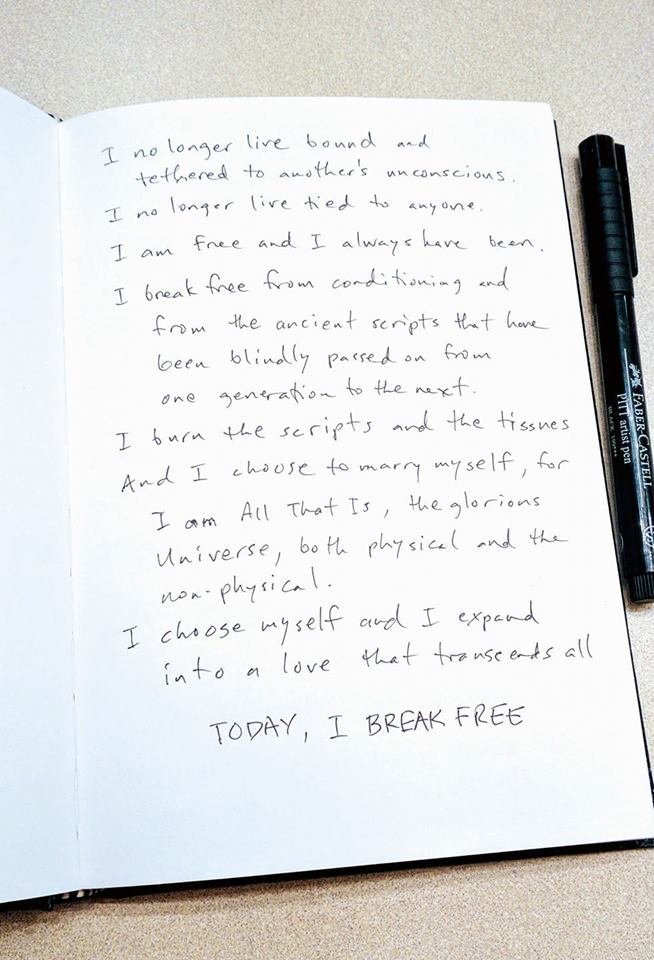 I no longer live bound and
tethered to another's unconscious.
I no longer live tied to anyone.
I am free and I always have been.
I break free from conditioning and
from the ancient scripts that have
been blindly passed on from
one generation to the next.
I burn the scripts and the tissues
And I choose to marry myself, for
I am All That Is, the glorious
Universe, both physical and the
non-physical.
I choose myself and I expand
into a love that transcends all
TODAY, I BREAK FREE
FABER-CASTELL
PITT artist pen
BLACK